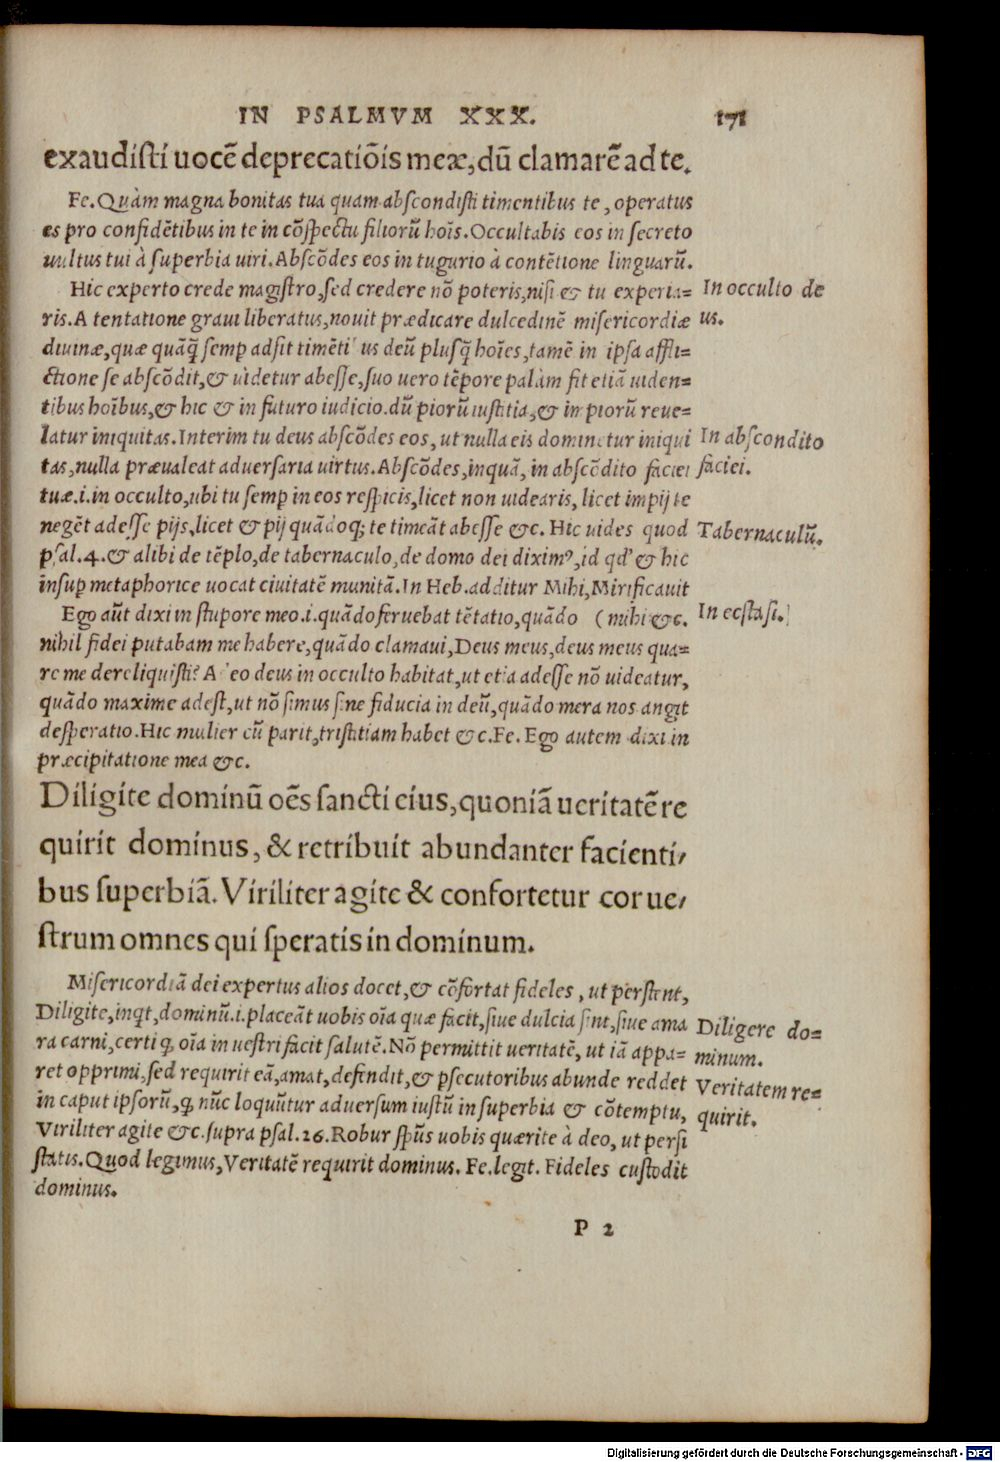 IN PSALMVM XXX. 171
exaudisti uocē deprecatiōis meæ, dū clamarē ad te.
Fe. Quàm magna bonitas tua quam abscondisti timentibus te, operatus
es pro confidētibus in te in cōspectu filiorū hoīs. Occultabis eos in secreto
uultus tui à superbia uiri. Abscōdes eos in tugurio à contētione linguarū.
Hic experto crede magistro, sed credere nō poteris, nisi & tu experia=
ris. A tentatione graui liberatus, nouit prædicare dulcedinē misericordiæ
diuinæ, quæ quāq̃ semp adsit timēti us deū plusq̃ hoīes, tamē in ipsa affli=
ctione se abscōdit, & uidetur abesse, suo uero tēpore palàm fit etiā uiden=
tibus hoībus, & hic & in futuro iudicio. dū piorū iustitia, & impiorū reue=
latur iniquitas. Interim tu deus abscōdes eos, ut nulla eis dominetur iniqui
tas, nulla præualeat aduersaria uirtus. Abscōdes, inquā, in abscōdito faciei
tuæ. i. in occulto, ubi tu semp in eos respicis, licet non uidearis, licet impij te
negēt adesse pijs, licet & pij quādoq; te timeāt abesse &c. Hic uides quod
psal. 4. & alibi de tēplo, de tabernaculo, de domo dei diximꝰ, id qd' & hic
insup metaphorice uocat ciuitatē munitā. In Heb. additur Mihi, Mirificauit
Ego aūt dixi in stupore meo. i. quādo feruebat tētatio, quādo ( mihi &c.
nihil fidei putabam me habere, quādo clamaui, Deus meus, deus meus qua=
re me dereliquisti? A eo deus in occulto habitat, ut etiā adesse nō uideatur,
quādo maxime adest, ut nō simus sine fiducia in deū, quādo mera nos angit
desperatio. Hic mulier cū parit, tristitiam habet &c. Fe. Ego autem dixi in
præcipitatione mea &c.
Diligite dominū oēs sancti eius, quoniā ueritatē re
quirit dominus, & retribuit abundanter facienti,
bus superbiā. Viriliter agite & confortetur cor ue,
strum omnes qui speratis in dominum.
Misericordiā dei expertus alios docet, & cōfortat fideles, ut perstent,
Diligite, inqt, dominū. i. placeāt uobis oīa quæ facit, siue dulcia sint, siue ama
ra carni, certi q̃ oīa in uestri facit salutē. Nō permittit ueritatē, ut iā appa=
ret opprimi, sed requirit eā, amat, defendit, & psecutoribus abunde reddet
in caput ipsorū, q̃ nūc loquūtur aduersum iustū in superbia & cōtemptu,
Viriliter agite &c. supra psal. 26. Robur spūs uobis quærite à deo, ut persi
statis. Quod legimus, Veritatē requirit dominus. Fe. legit. Fideles custodit
dominus.
P 2
In occulto de
us.
In abscondito
faciei.
Tabernaculū.
In ecstasi.
Diligere do=
minum.
Veritatem re=
quirit.
Digitalisierung gefördert durch die Deutsche Forschungsgemeinschaft - DFG